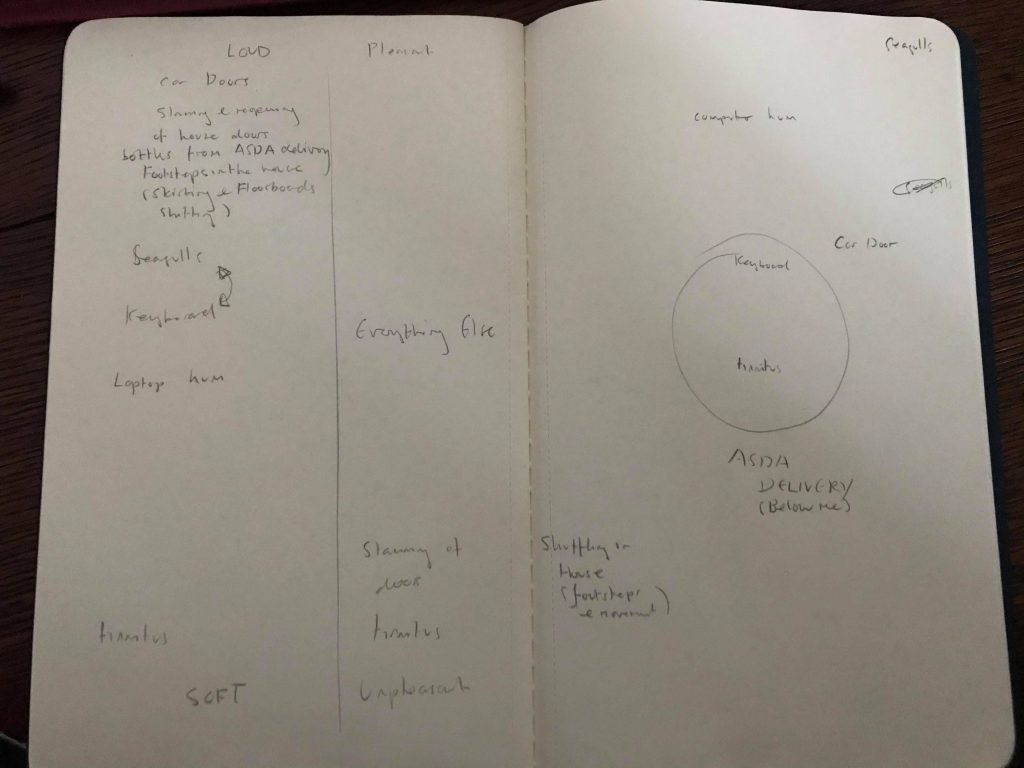 LOUD
Car Doors
Slaming & reopening
of house doors
bottles from ASDA delivery
Footsteps in the house
(Skirting & Floorboards
shifting)
Seagulls
Keyboard
Laptop hum
tinnitus
SOFT
Pleasant
Everything Else
Slamming of
doors
tinnitus
Unpleasant
Seagulls
computer hum
Car Door
Keyboard
tinnitus
ASDA
DELIVERY
(Below me)
Shuffling in
House
(footsteps
& movement)